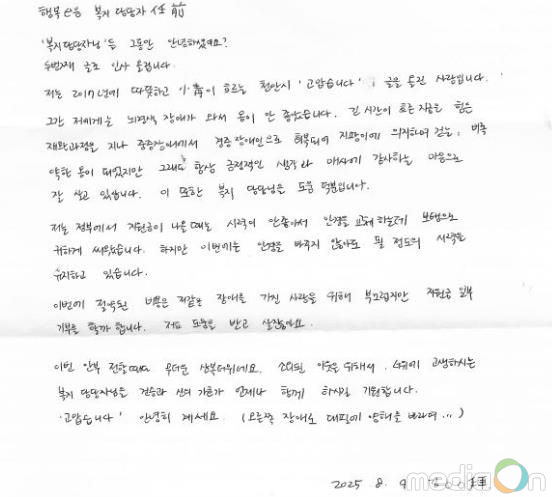 행복e음 복지 담당자 任前
'복지담당자님'들 그동안 안녕하셨어요?
두번째 글로 인사 올립니다.
저는 2017년에 따뜻하고 소흘이 흐르는 천안시 '고맙습니다' 글을 올린 사람입니다.
그간 저에게는 뇌경색 장애가 와서 몸이 안 좋았습니다. 긴 시간이 흐른 지금은 힘든
재활과정을 지나 중증장애에서 경증장애인으로 회복되어 지팡이에 의지하여 걷는, 비록
약한 몸이 되었지만 그래도 항상 긍정적인 생각과 매사에 감사하는 마음으로
잘 살고 있습니다. 이 또한 복지 담당님들 도움 덕분입니다.
저는 정부에서 지원금이 나올 때는 시력이 안좋아서 안경을 교체 하는데 보탬으로
귀하게 써왔습니다. 하지만 이번에는 안경을 바꾸지 않아도 될 정도의 시력을
유지하고 있습니다.
이번에 절약된 비용은 저같은 장애를 가진 사람을 위해 부끄럽지만 지원금 일부
기부를 할까 합니다. 저도 도움을 받고 살잖아요.
이번 안부 전할때는 무더운 삼복더위네요. 소외된 이웃을 위해서, 더위에 고생하시는
복지 담당자님들 건승과 신의 가호가 언제나 함께 하시길 기원합니다.
'고맙습니다' 안녕히 계세요. (오른쪽 장애로 대필에 양해를 바라며...)
2025 8. 9
mediaOn